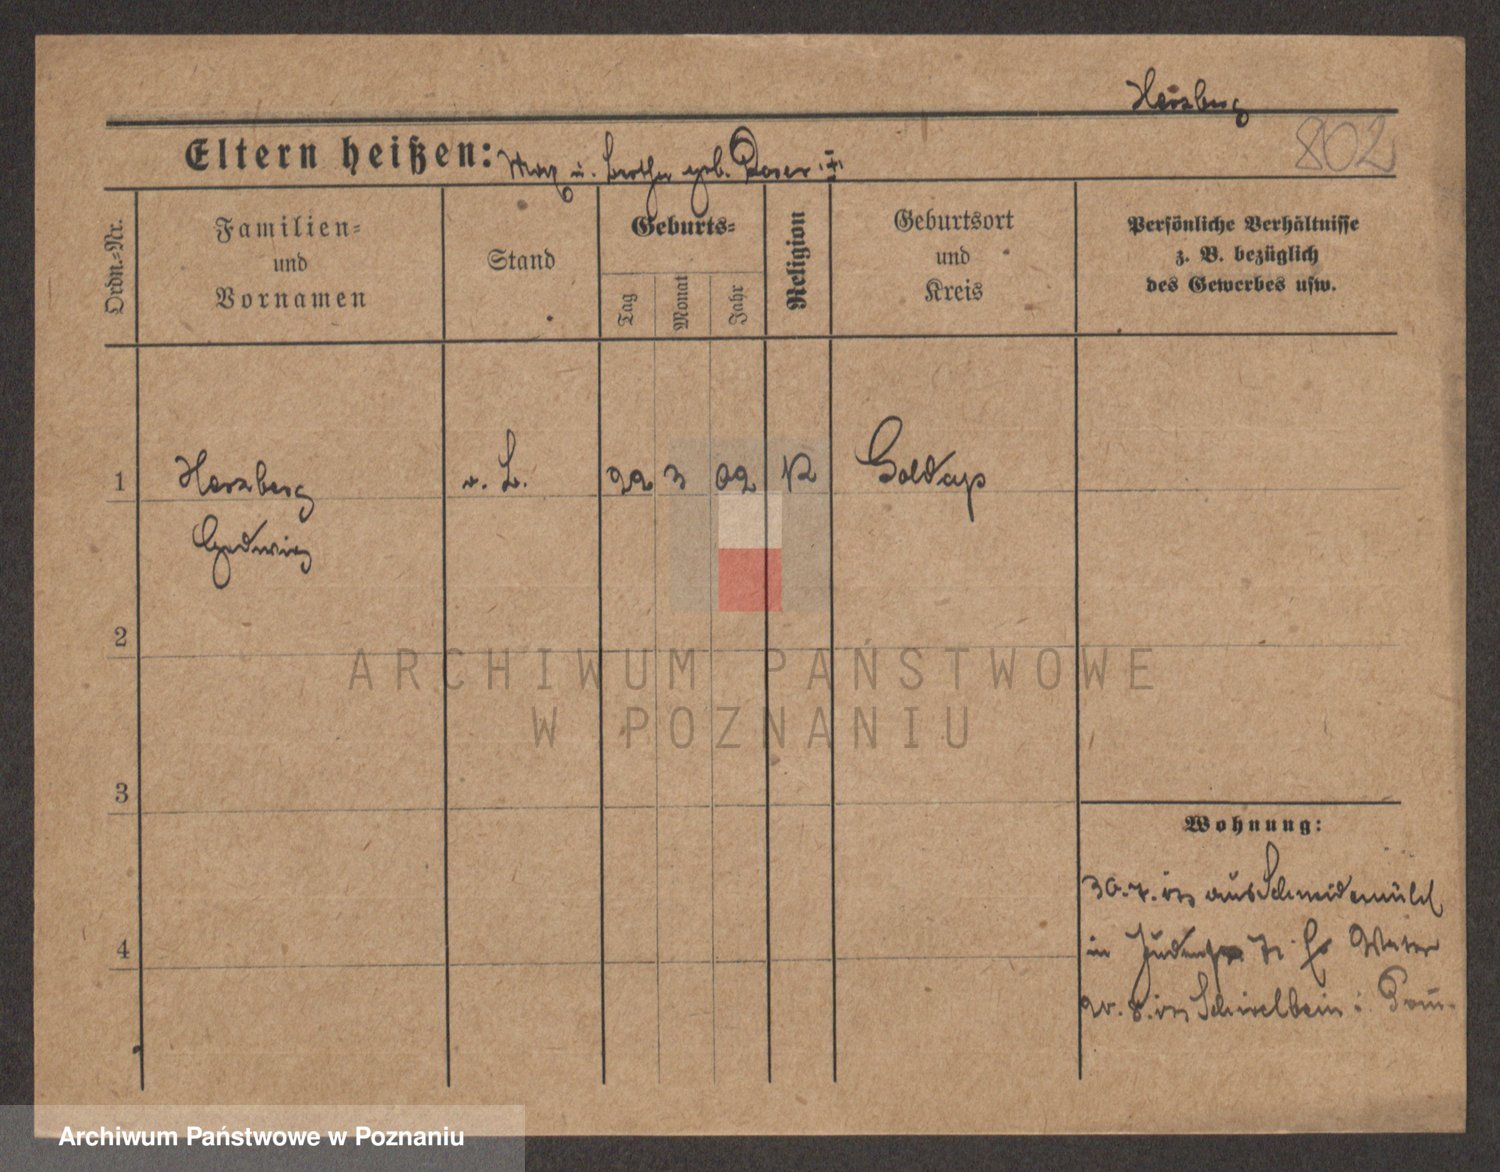 Herzberg
802
Eltern heißen: Max u. Berthe geb. Poser
Ordn.-Nr.
Familien-
und
Vornamen
Stand
Geburts-
Tag
Monat
Jahr
Religion
Geburtsort
und
Kreis
Persönliche Verhältnisse
z. B. bezüglich
des Gewerbes usw.
1
Herzberg
Hedwig
o. B.
22
3
02
Goldap
2
3
4
Wohnung:
30.7. aus Schneidemühl
in
20.8. Schivelbein i. Pom.
ARCHIWUM PAŃSTWOWE
W POZNANIU
Archiwum Państwowe w Poznaniu